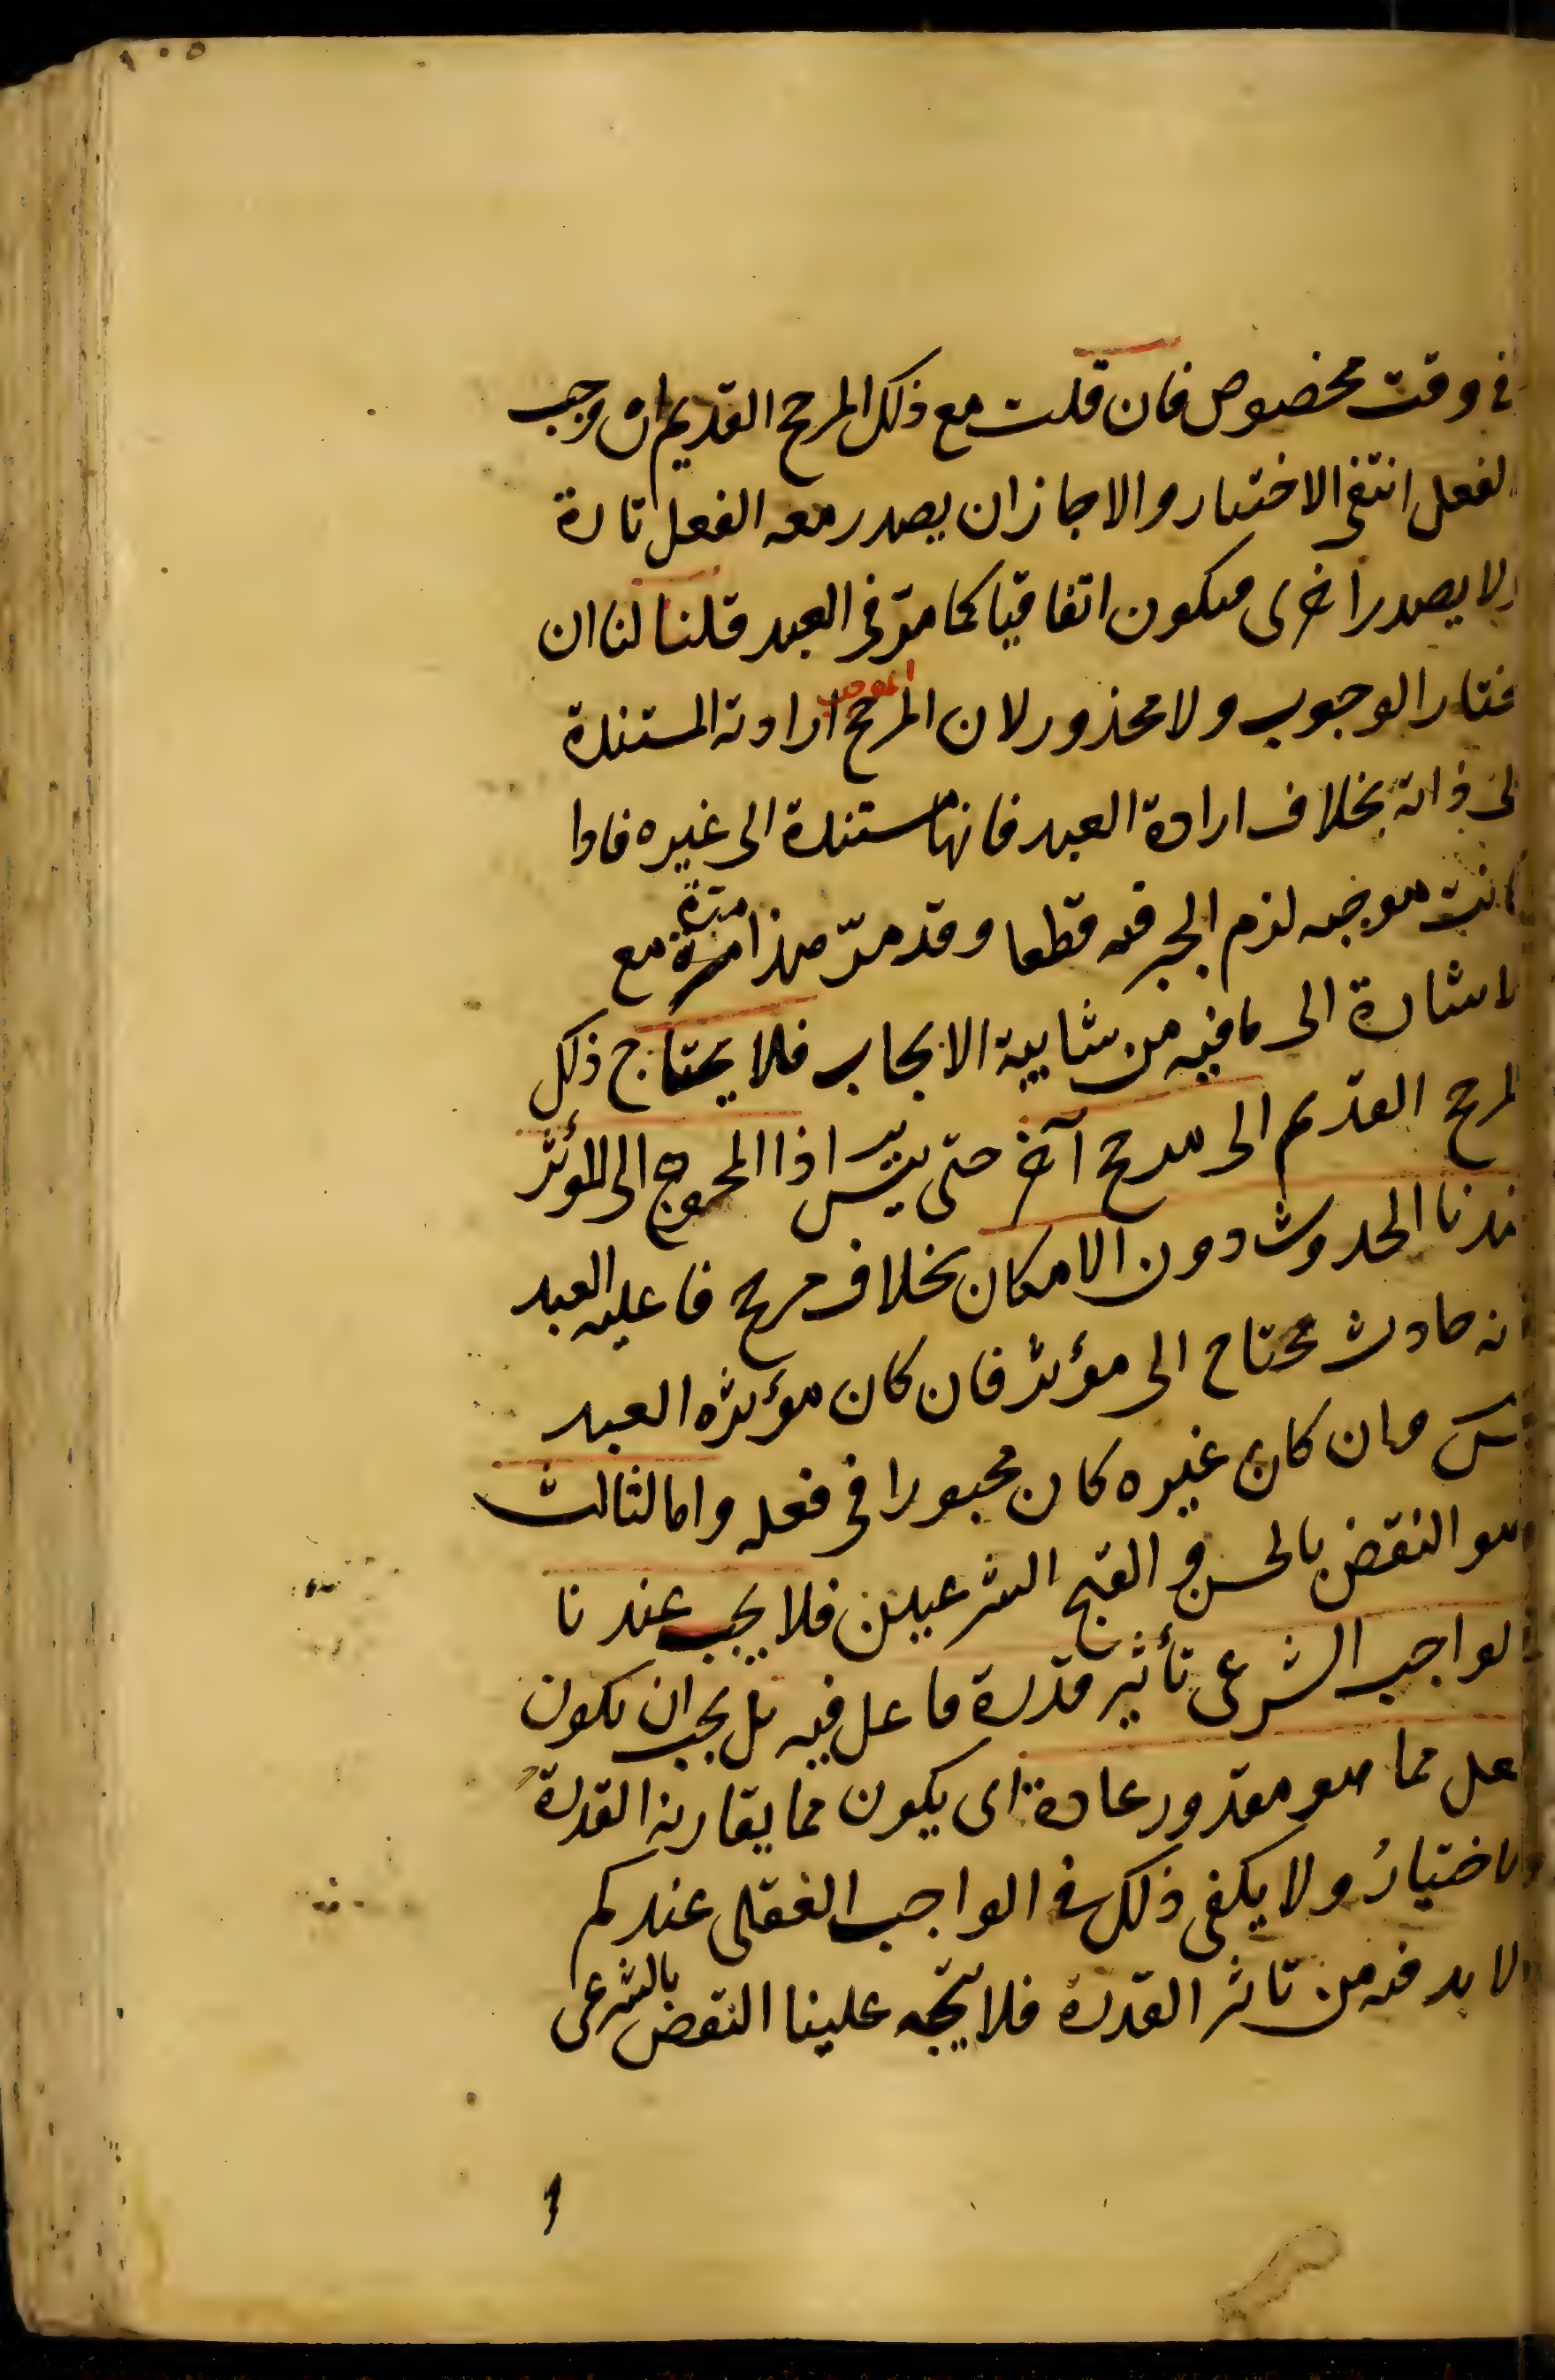 ١٠٥
فى وقت مخصوص فان قلت مع ذلك المرجح القديم ان وجب
لفعل انتفى الاختيار والا جاز ان يصدر معه الفعل تارة
ولا يصدر اخرى فيكون اتفاقيا كما مرّ فى العبد قلنا لنا ان
نختار الوجوب ولا محذور لان المرجح الموجب ارادته المستندة
لى ذاته بخلاف ارادة العبد فانها مستندة الى غيره فاذا
كانت موجبه لزم الجبر فيه قطعا وقد مرّ هذا مرة مع
لاشارة الى ما فيه من شايبة الايجاب فلا يحتاج ذلك
لمرجح القديم الى مرجح آخر حتى يتس اذ المحوج الى المؤثر
عندنا الحدوث دون الامكان بخلاف مرجح فاعليه العبد
فانه حادث محتاج الى مؤثر فان كان مؤثره العبد
تس وان كان غيره كان مجبورا فى فعله واما الثالث
وهو النقض بالحسن والقبح الشرعيين فلا يجب عندنا
لواجب الشرعى تأثير قدرة فاعل فيه بل يجب ان يكون
لفعل مما هو مقدور عادة اى يكون مما يقارنه القدرة
والاختيار ولا يكفى ذلك فى الواجب العقلى عندكم
ولا بد فيه من تاثر القدرة فلا يتجه علينا النقض بالشرعى